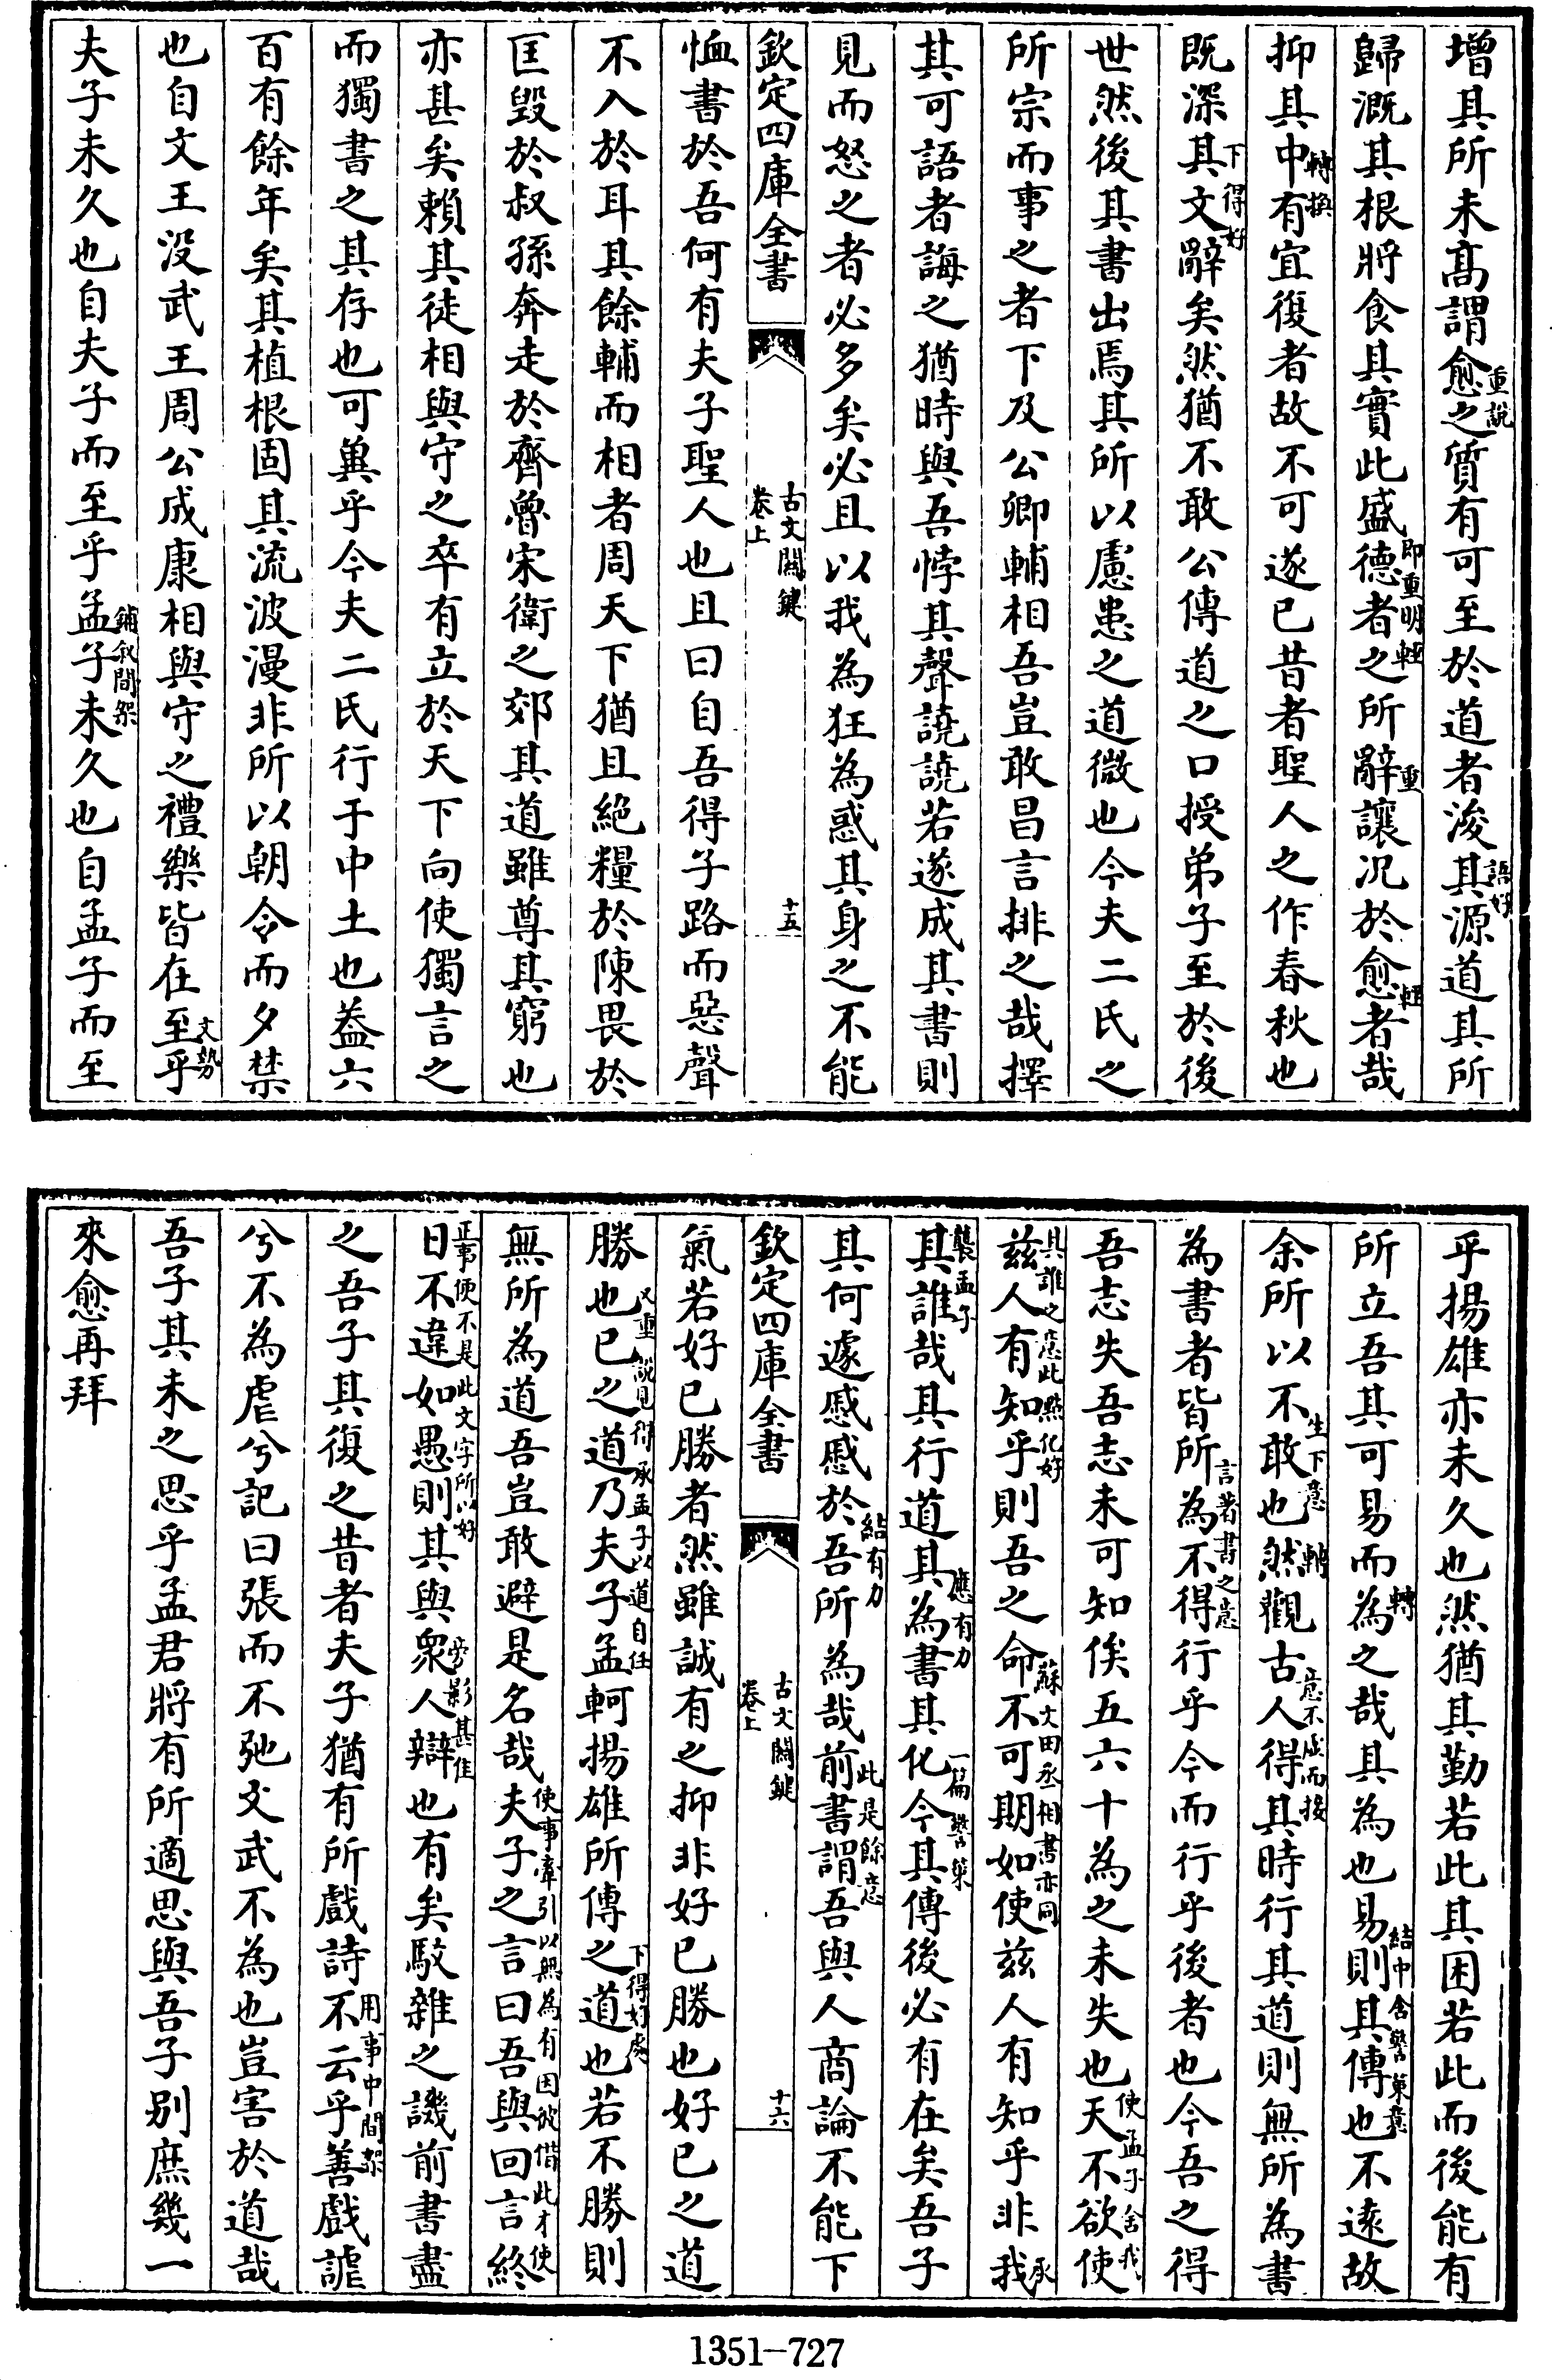 增其所未高謂愈之質有可至於道者浚其源道其所
重說
語好
歸溉其根將食其實此盛德者之所辭讓况於愈者哉
即重明輕
重
輕
抑其中有宜復者故不可遂已昔者聖人之作春秋也
轉換
既深其文辭矣然猶不敢公傳道之口授弟子至於後
下得好
世然後其書出焉其所以慮患之道微也今夫二氏之
所宗而事之者下及公卿輔相吾豈敢昌言排之哉擇
其可語者誨之猶時與吾悖其聲譊譊若遂成其書則
見而怒之者必多矣必且以我為狂為惑其身之不能
欽定四庫全書
古文關鍵
卷上
十五
恤書於吾何有夫子聖人也且曰自吾得子路而惡聲
不入於耳其餘輔而相者周天下猶且絶糧於陳畏於
匡毀於叔孫奔走於齊魯宋衛之郊其道雖尊其窮也
亦甚矣賴其徒相與守之卒有立於天下向使獨言之
而獨書之其存也可兾乎今夫二氏行于中土也葢六
百有餘年矣其植根固其流波漫非所以朝令而夕禁
也自文王没武王周公成康相與守之禮樂皆在至乎
文勢
夫子未久也自夫子而至乎孟子未久也自孟子而至
鋪叙間架
乎揚雄亦未久也然猶其勤若此其困若此而後能有
所立吾其可易而為之哉其為也易則其傳也不逺故
轉
結中含警策意
余所以不敢也然觀古人得其時行其道則無所為書
生下意
轉
意不盡而接
為書者皆所為不得行乎今而行乎後者也今吾之得
言著書之意
吾志失吾志未可知俟五六十為之未失也天不欲使
使孟子舍我
兹人有知乎則吾之命不可期如使兹人有知乎非我
其誰之意此點化好
蘇文田丞相書亦同
承
其誰哉其行道其為書其化今其傳後必有在矣吾子
襲孟子
應有力
一篇警策
其何遽慼慼於吾所為哉前書謂吾與人商論不能下
結有力
此是餘意
欽定四庫全書
古文關鍵
卷上
十六
氣若好已勝者然雖誠有之抑非好已勝也好已之道
勝也已之道乃夫子孟軻揚雄所傳之道也若不勝則
又重說見得承孟子以道自任
下得好處
無所為道吾豈敢避是名哉夫子之言曰吾與回言終
使事牽引以照為有因彼借此才使
日不違如愚則其與衆人辯也有矣駁雜之譏前書盡
正事便不是此文字所以好
旁影甚佳
之吾子其復之昔者夫子猶有所戲詩不云乎善戲謔
用事中間架
兮不為虐兮記曰張而不弛文武不為也豈害於道哉
吾子其未之思乎孟君將有所適思與吾子别庶幾一
來愈再拜
1351-727